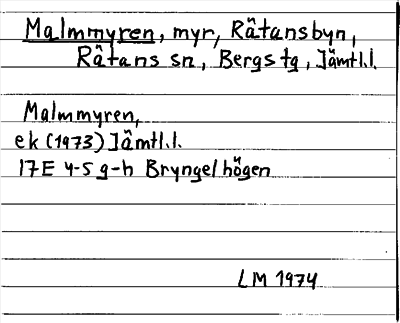 Malmmyren, myr, Råtansbyn,
Råtans sn, Bergs tg, Jämtl.l.
Malmmyren,
ek (1973) Jämtl.l.
17E 4-5 g-h Bryngelhögen
LM 1974